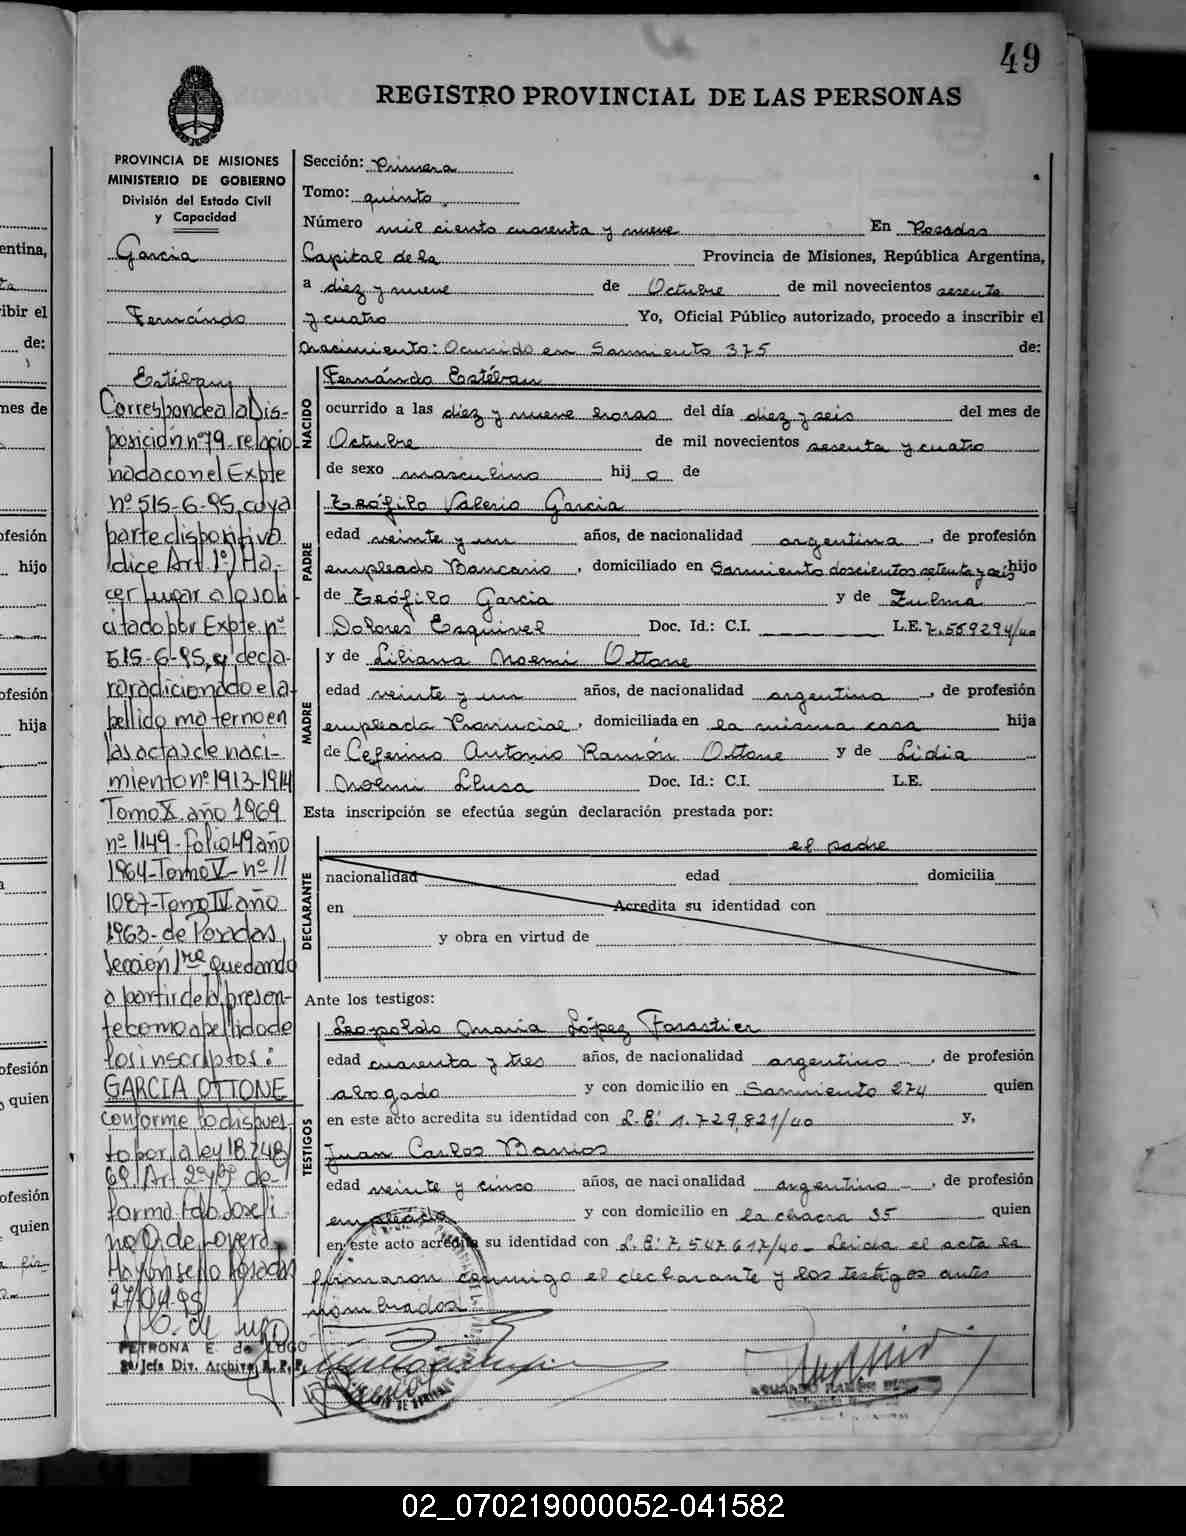 49
REGISTRO PROVINCIAL DE LAS PERSONAS
PROVINCIA DE MISIONES
MINISTERIO DE GOBIERNO
División del Estado Civil
y Capacidad
Garcia
Fernándo
Estéban
Corresponde a la Dis-
posición nº 79 - relacio
nada con el Expte
nº 515-6-95, cuya
parte dispositiva
dice Art. 1º) Ha-
cer lugar a lo soli
citado por Expte. nº
515-6-95, y decla-
rar adicionado el a-
pellido materno en
las actas de naci-
miento nº 1913-1914
Tomo X año 1969
nº 1149 - folio 49 año
1964 - Tomo V - nº 11
1087 - Tomo IV año
1963 - de Posadas,
sección 1ra quedando
a partir de la presen-
te como apellido de
los inscriptos:
GARCIA OTTONE
conforme lo dispues-
to por la ley 18.248/
69. Art 2º y 5º de-
forma Fdo Josefi
na O. de Lovera
Hay un sello Posadas
27/04/95
PETRONA E. de LUGO
Jefa Div. Archivo R. P. P.
Sección: Primera
Tomo: quinto
Número mil ciento cuarenta y nueve En Posadas
Capital de la Provincia de Misiones, República Argentina,
a diez y nueve de Octubre de mil novecientos sesenta
y cuatro Yo, Oficial Público autorizado, procedo a inscribir el
nacimiento: Ocurrido en Sarmiento 375 de:
NACIDO
Fernándo Estéban
ocurrido a las diez y nueve horas del día diez y seis del mes de
Octubre de mil novecientos sesenta y cuatro
de sexo masculino hijo de
PADRE
Teófilo Valerio Garcia
edad veinte y un años, de nacionalidad argentina, de profesión
empleado Bancario, domiciliado en Sarmiento doscientos setenta y seis hijo
de Teófilo Garcia y de Zulma
Dolores Esquivel Doc. Id.: C.I. L.E. 7.559294/40
MADRE
y de Liliana Noemi Ottone
edad veinte y un años, de nacionalidad argentina, de profesión
empleada Provincial, domiciliada en la misma casa hija
de Ceferino Antonio Ramón Ottone y de Lidia
Noemi Llusa Doc. Id.: C.I. L.E.
Esta inscripción se efectúa según declaración prestada por:
el padre
DECLARANTE
nacionalidad edad domicilia
en Acredita su identidad con
y obra en virtud de
Ante los testigos:
TESTIGOS
Leopoldo Maria López Forastier
edad cuarenta y tres años, de nacionalidad argentino, de profesión
abogado y con domicilio en Sarmiento 274 quien
en este acto acredita su identidad con L.E. 1.729,821/40 y,
Juan Carlos Barrios
edad veinte y cinco años, de nacionalidad argentino, de profesión
empleado y con domicilio en la chacra 35 quien
en este acto acredita su identidad con L.E. 7.547.617/40 - Leida el acta la
firmaron conmigo el declarante y los testigos antes
nombrados
02_070219000052-041582